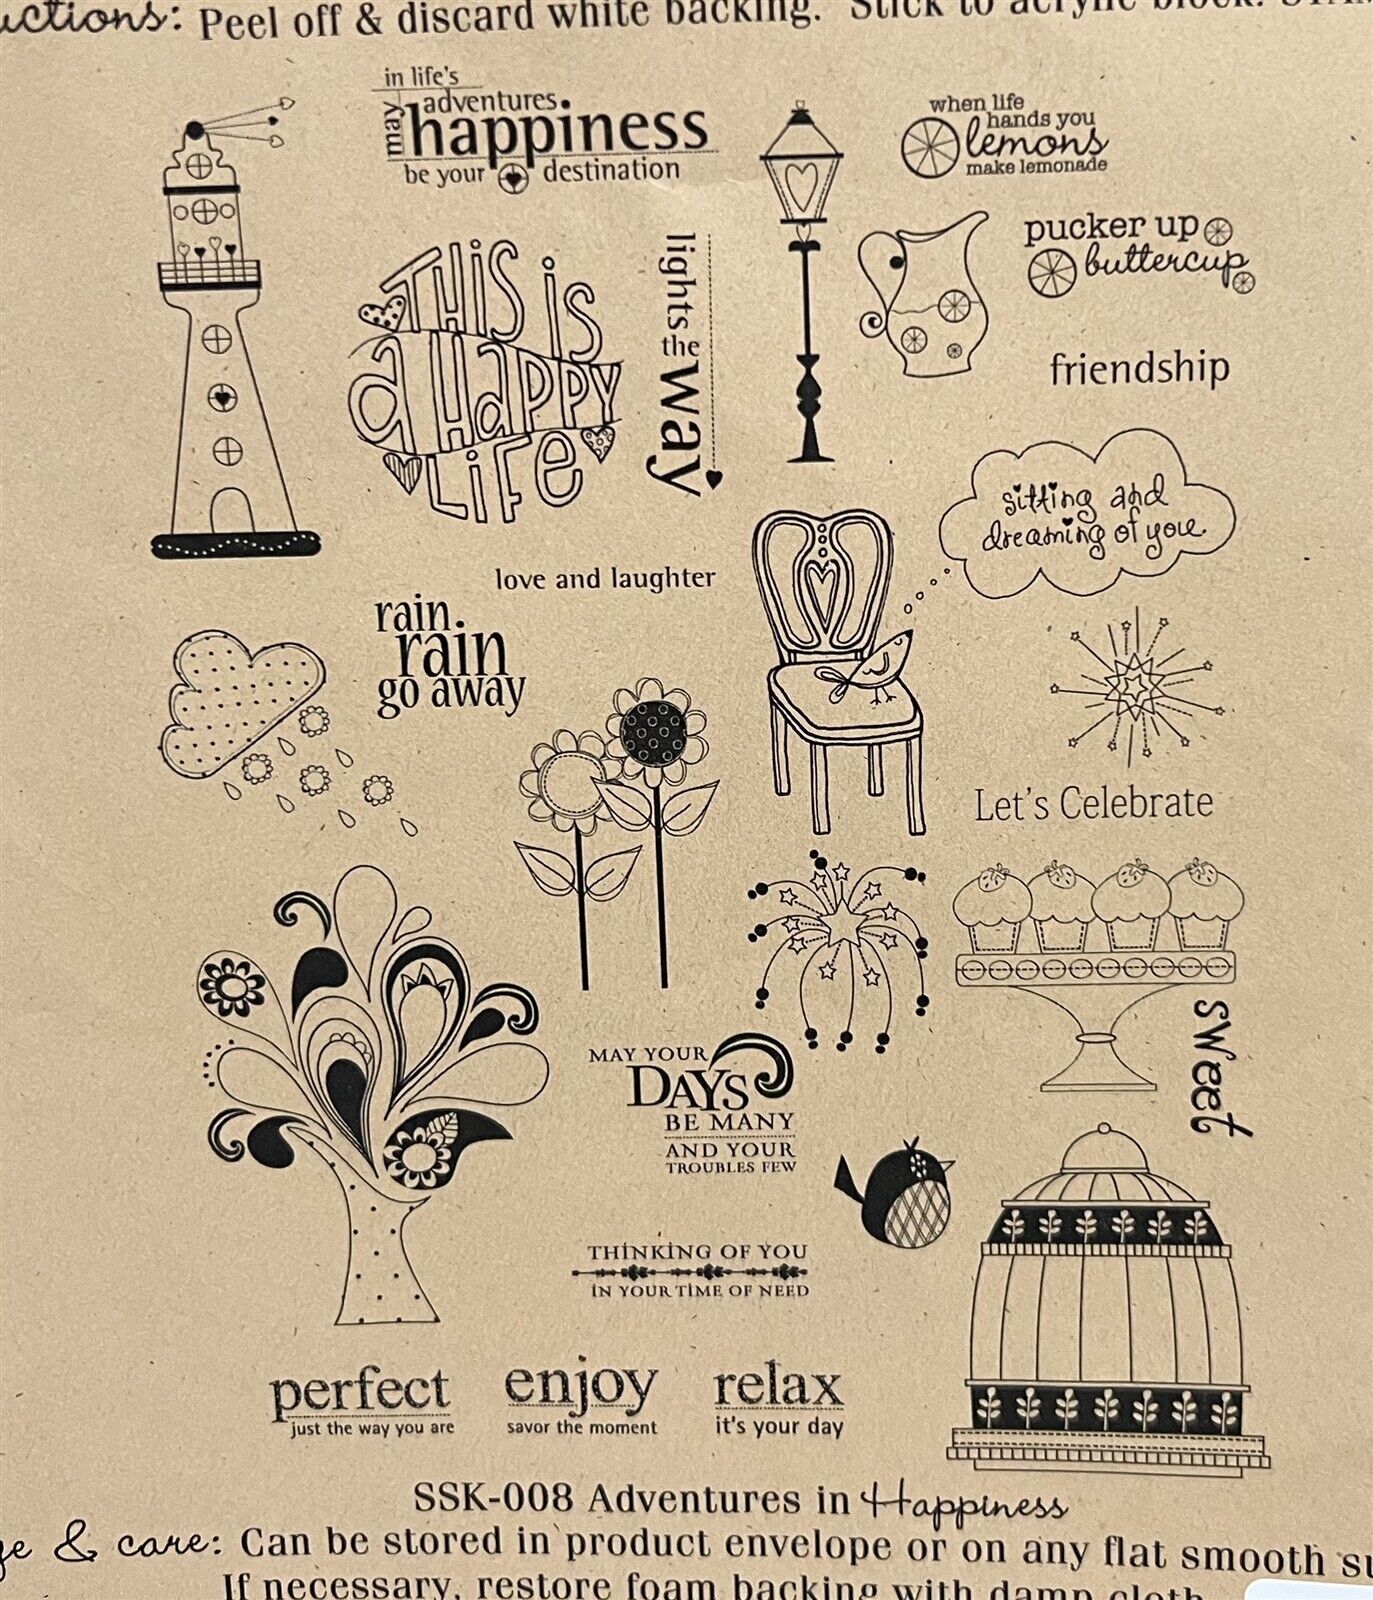 uctions: Peel off & discard white backing. Stick to acrylic block.
in life's
may adventures
happiness
be your destination
when life
hands you
lemons
make lemonade
pucker up
buttercup
THIS is
a HaPPY
LiFe
lights the way
friendship
sitting and
dreaming of you.
love and laughter
rain
rain
go away
Let's Celebrate
sweet
MAY YOUR
DAYS
BE MANY
AND YOUR
TROUBLES FEW
THiNKiNG OF YOU
iN YOUR TiME OF NEED
perfect
just the way you are
enjoy
savor the moment
relax
it's your day
SSK-008 Adventures in Happiness
ge & care: Can be stored in product envelope or on any flat smooth su
If necessary, restore foam backing with damp cloth.